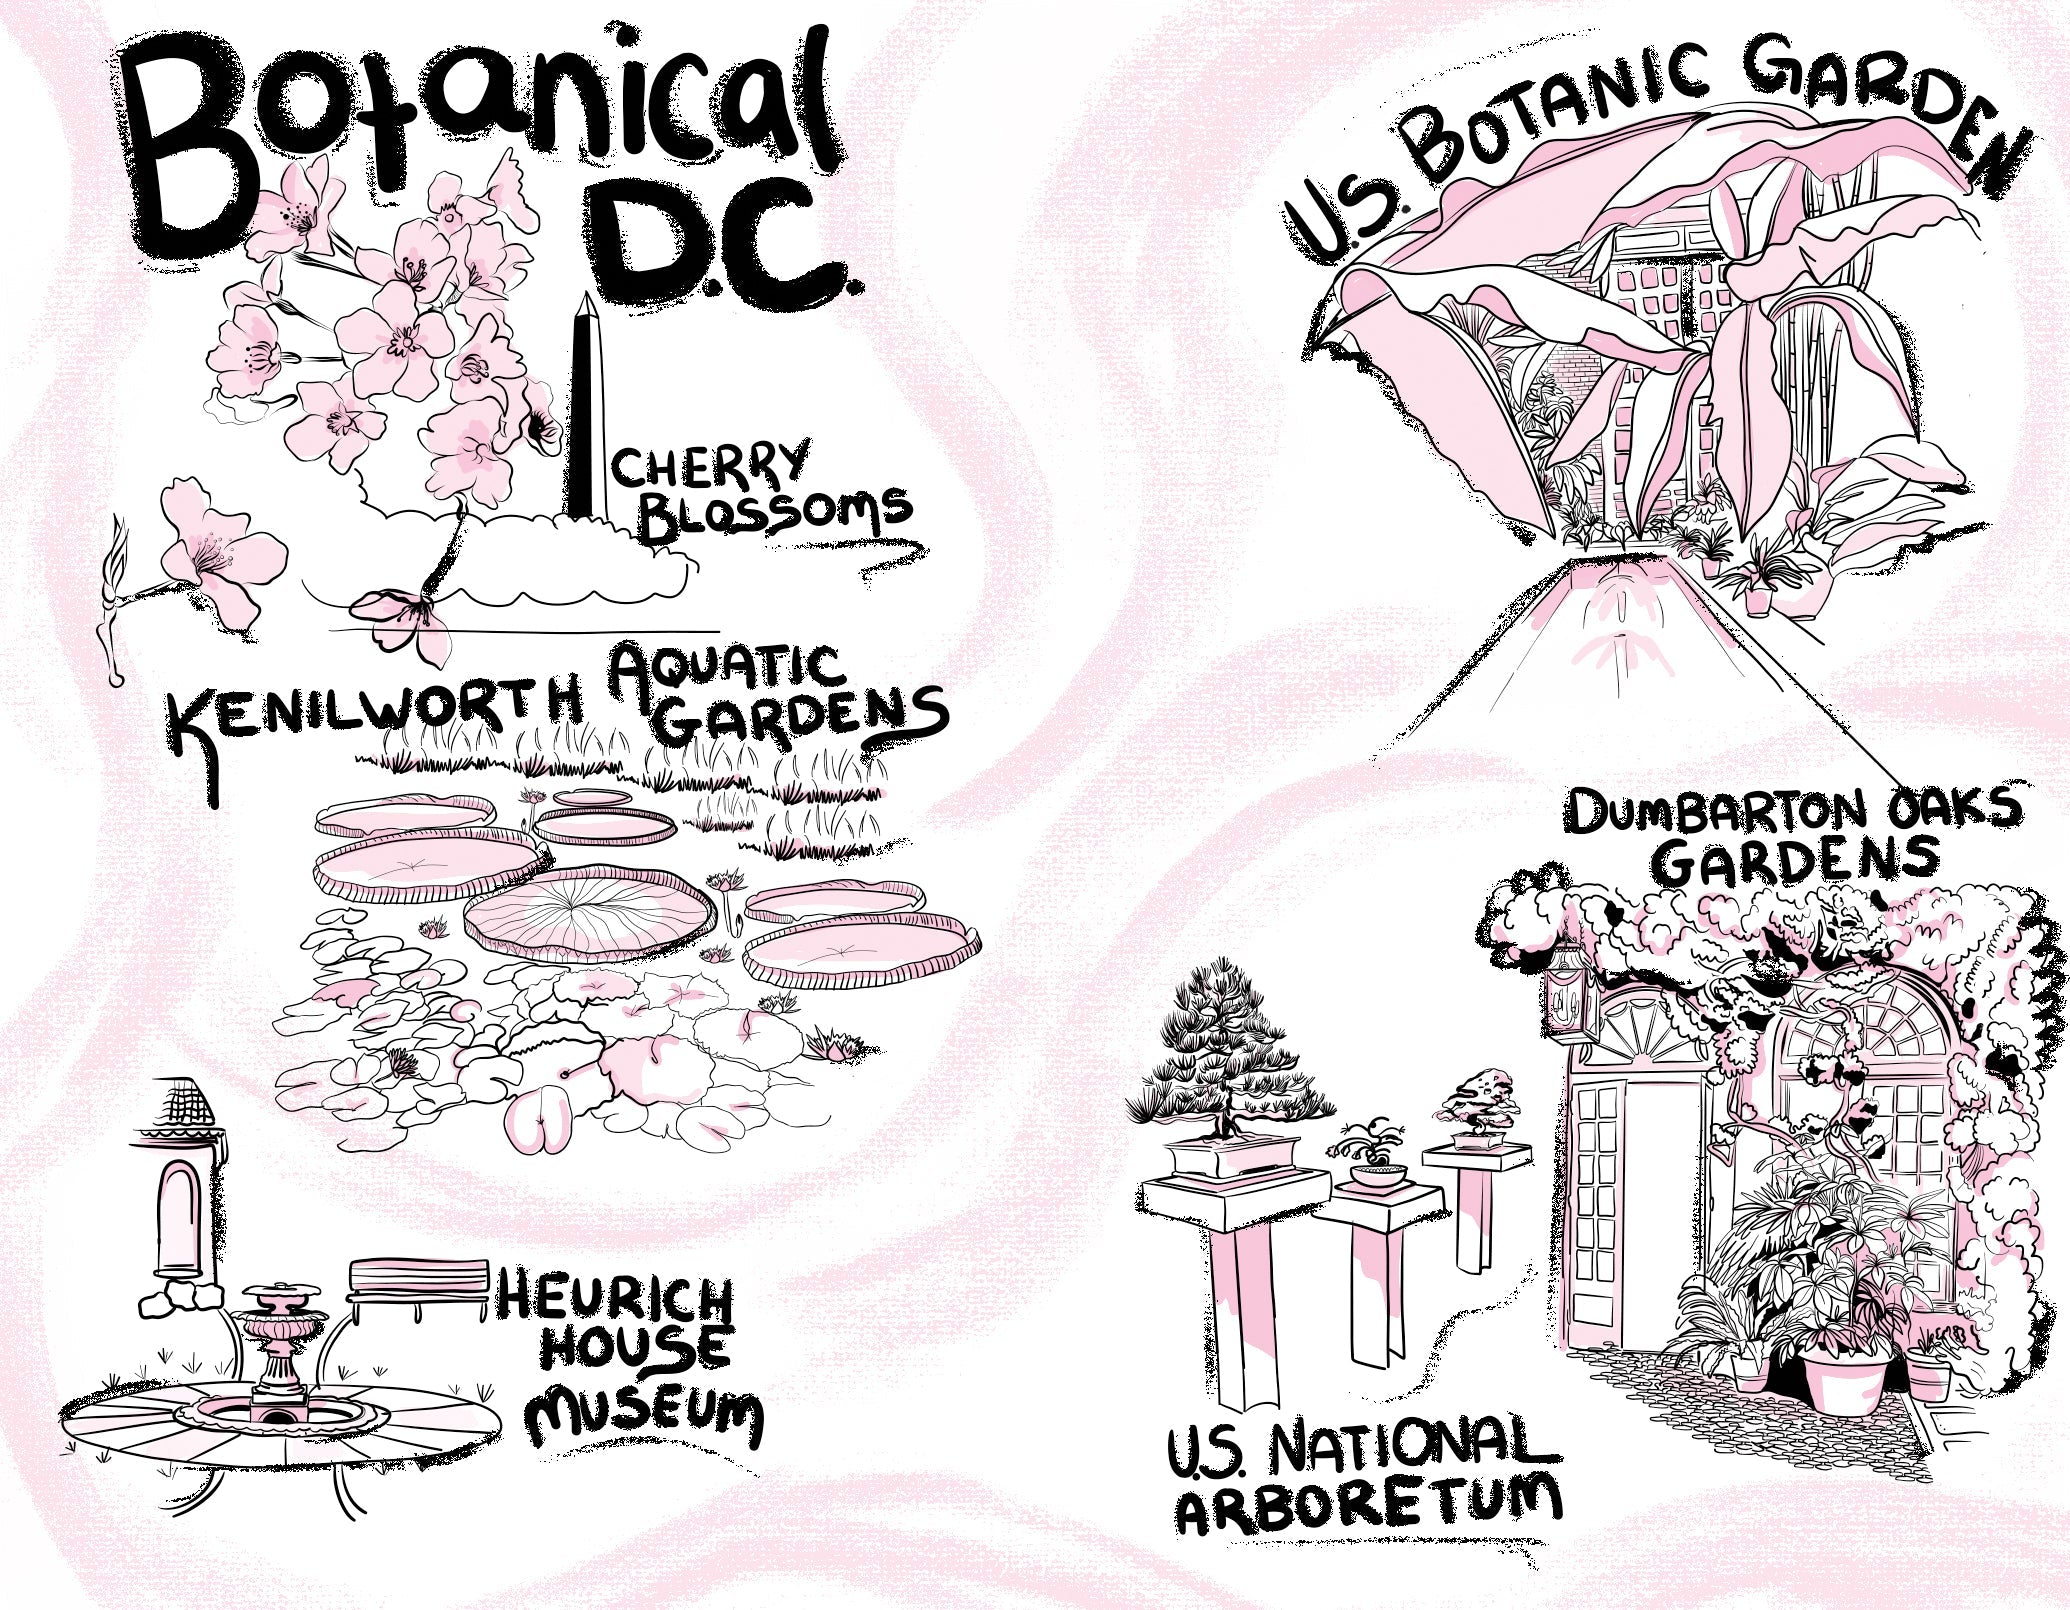 Botanical
D.C.
CHERRY
BLOSSOMS
KENILWORTH AQUATIC
GARDENS
HEURICH
HOUSE
MUSEUM
U.S. BOTANIC GARDEN
DUMBARTON OAKS
GARDENS
U.S. NATIONAL
ARBORETUM